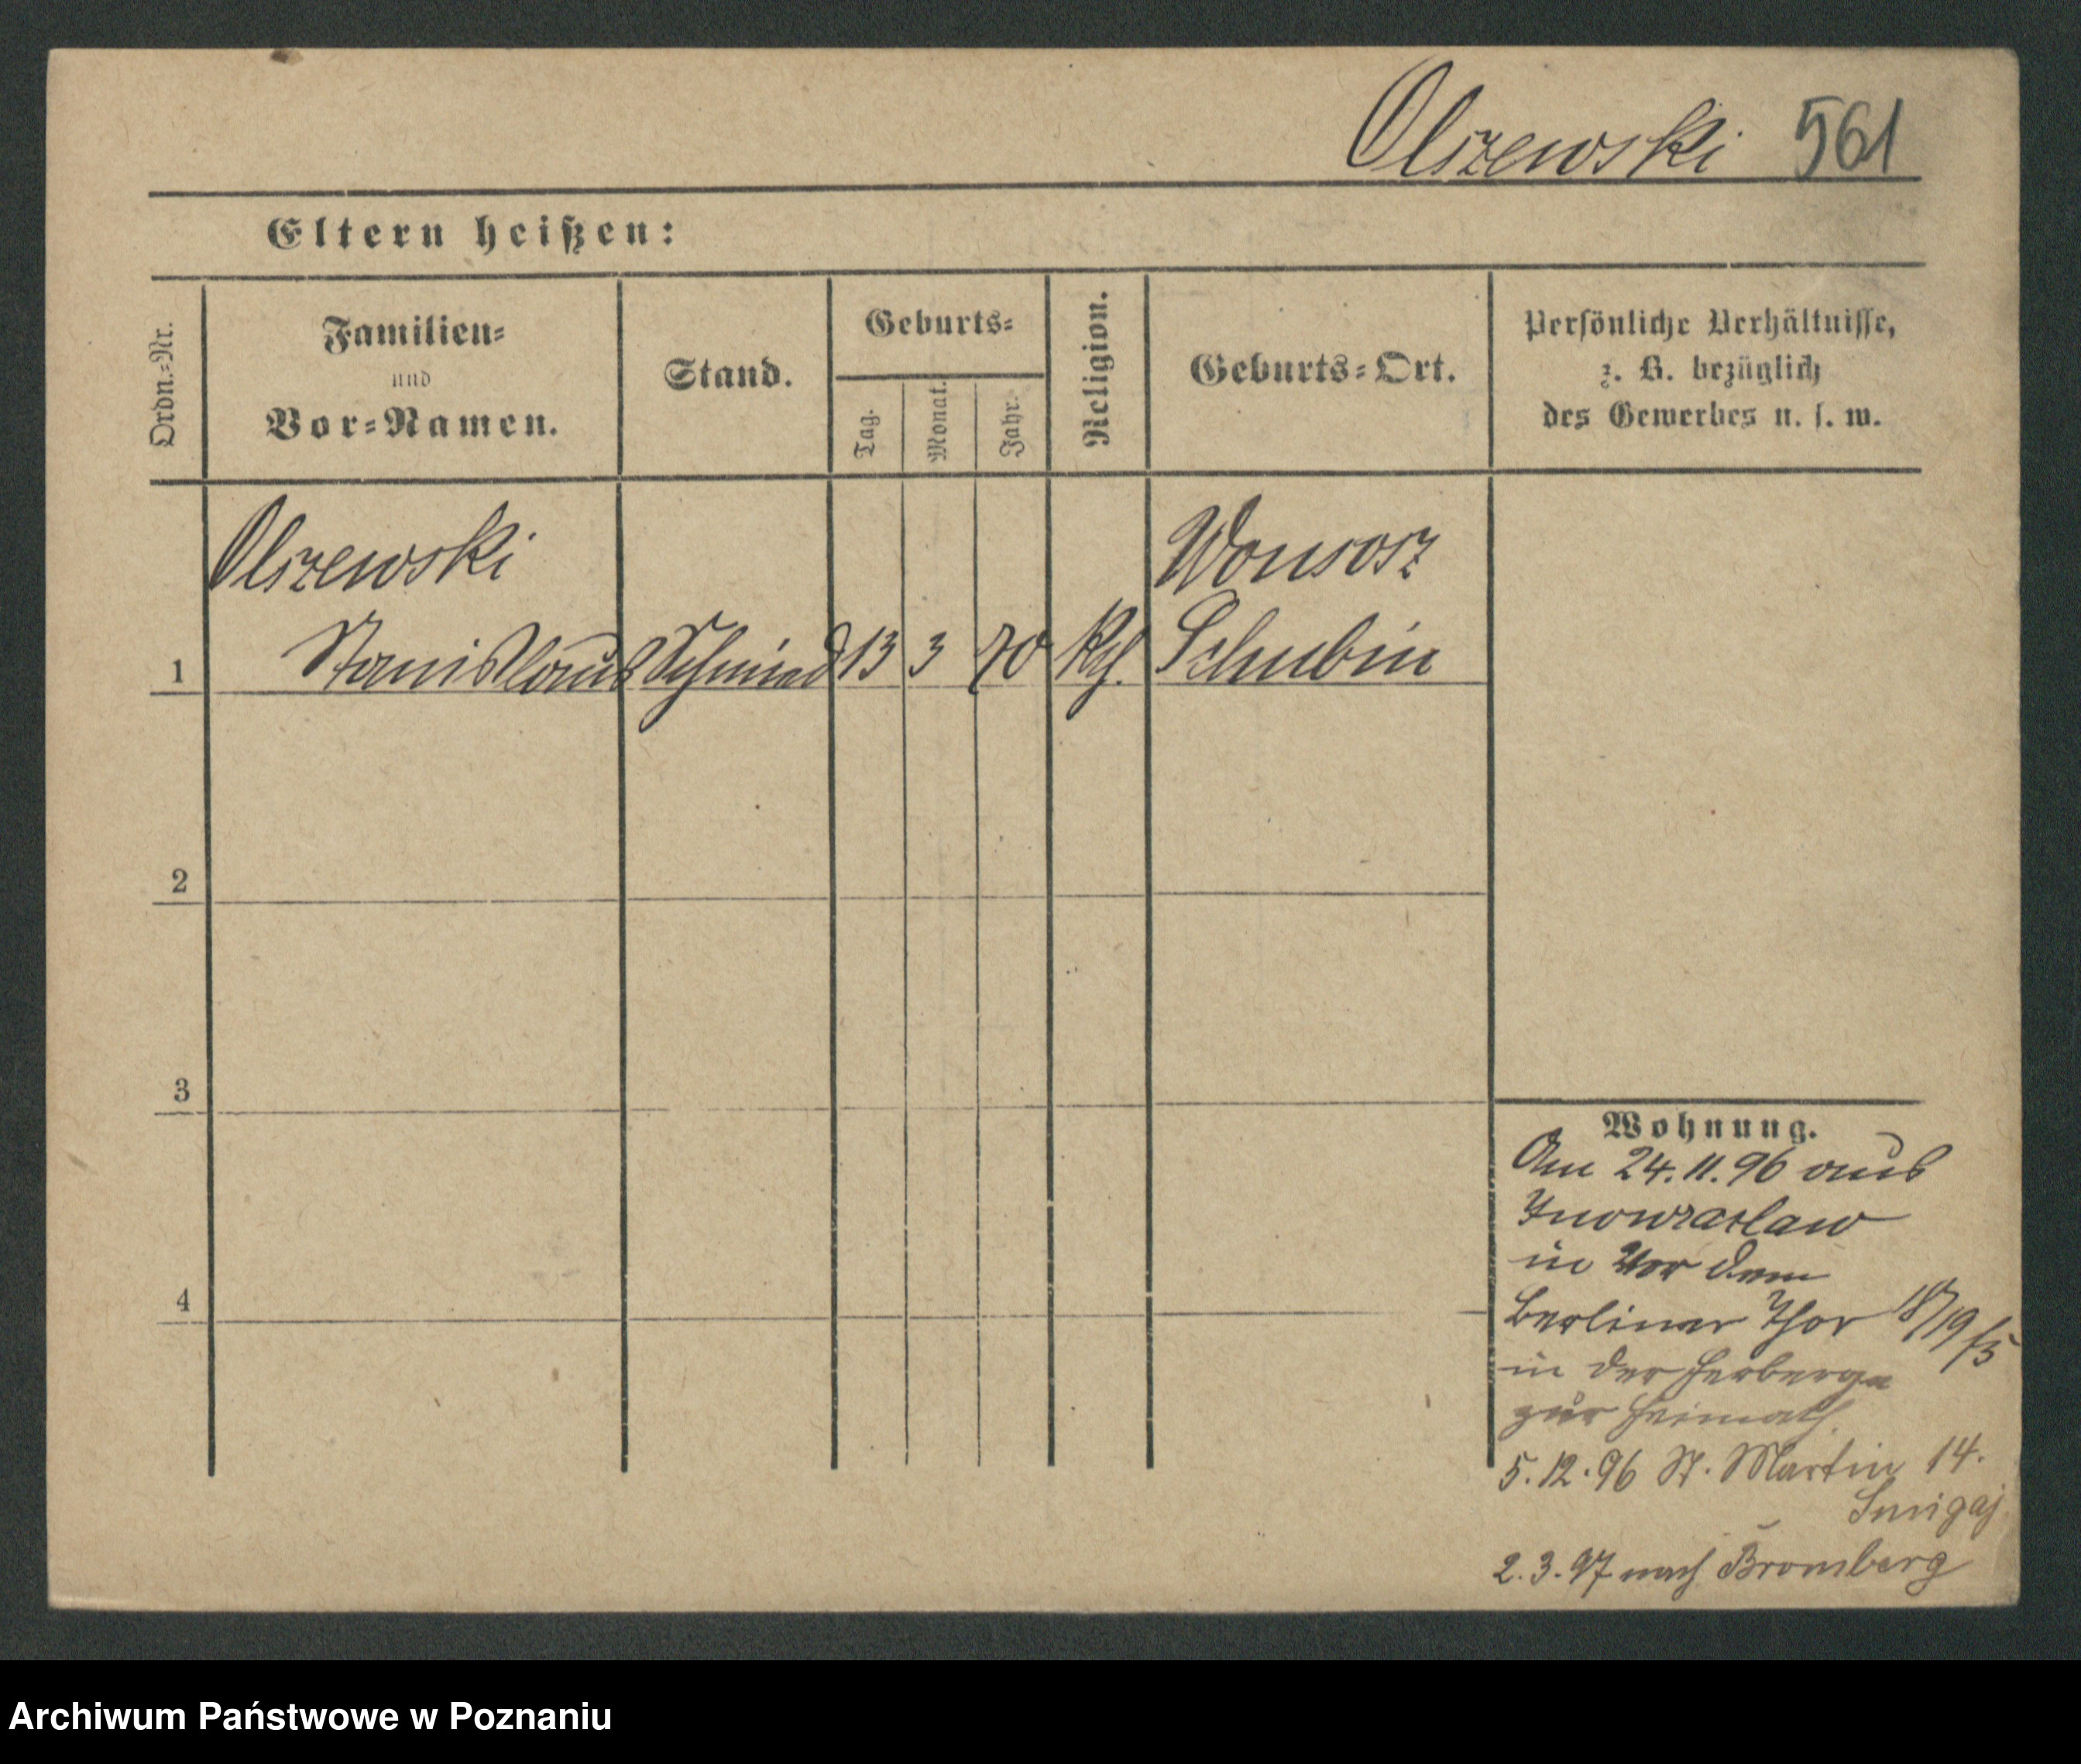 Olszewski 561
Eltern heißen:
Ordn.-Nr.
Familien-
und
Vor-Namen.
Stand.
Geburts-
Tag.
Monat.
Jahr.
Religion.
Geburts-Ort.
Persönliche Verhältnisse,
z. B. bezüglich
des Gewerbes u. s. w.
Olszewski
Wonsosz
1 Stanislaus Schmied 13 3 70 Kth. Schubin
2
3
4
Wohnung.
Am 24.11.96 aus
Inowrazlaw
in Vor dem
Berliner Thor 18/19
in der Herberge
zur Heimath
5.12.96 St. Martin 14.
Smigaj
2.3.97 nach Bromberg
Archiwum Państwowe w Poznaniu